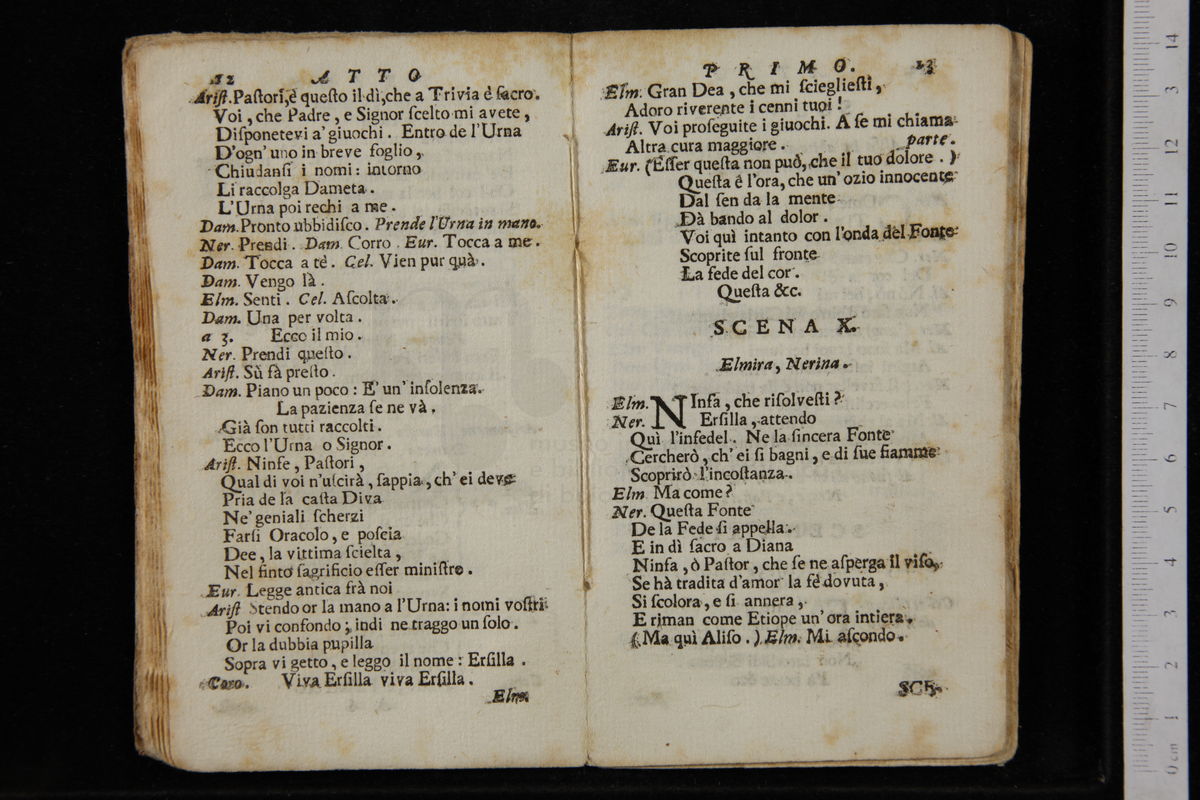 12 ATTO
Arist. Pastori, è questo il dì, che a Trivia è sacro.
Voi, che Padre, e Signor scelto mi avete,
Disponetevi a' giuochi. Entro de l'Urna
D'ogn' uno in breve foglio,
Chiudansi i nomi: intorno
Li raccolga Dameta.
L'Urna poi rechi a me.
Dam. Pronto ubbidisco. Prende l'Urna in mano.
Ner. Prendi. Dam. Corro. Eur. Tocca a me.
Dam. Tocca a tè. Cel. Vien pur quà.
Dam. Vengo là.
Elm. Senti. Cel. Ascolta.
Dam. Una per volta.
a 3. Ecco il mio.
Ner. Prendi questo.
Arist. Sù fà presto.
Dam. Piano un poco: E' un' insolenza.
La pazienza se ne và.
Già son tutti raccolti.
Ecco l'Urna o Signor.
Arist. Ninfe, Pastori,
Qual di voi n'uscirà, sappia, ch' ei deve
Pria de la casta Diva
Ne' geniali scherzi
Farsi Oracolo, e poscia
Dee, la vittima scielta,
Nel finto sagrificio esser ministro.
Eur. Legge antica frà noi
Arist Stendo or la mano a l'Urna: i nomi vostri
Poi vi confondo; indi ne traggo un solo.
Or la dubbia pupilla
Sopra vi getto, e leggo il nome: Ersilla.
Coro. Viva Ersilla viva Ersilla.
Elm.
PRIMO. 13
Elm. Gran Dea, che mi sciegliesti,
Adoro riverente i cenni tuoi!
Arist. Voi proseguite i giuochi. A se mi chiama
Altra cura maggiore. parte.
Eur. (Esser questa non può, che il tuo dolore.)
Questa è l'ora, che un' ozio innocente
Dal sen da la mente
Dà bando al dolor.
Voi quì intanto con l'onda del Fonte
Scoprite sul fronte
La fede del cor.
Questa &c.
SCENA X.
Elmira, Nerina.
Elm. NInfa, che risolvesti?
Ner. Ersilla, attendo
Quì l'infedel. Ne la sincera Fonte
Cercherò, ch' ei si bagni, e di sue fiamme
Scoprirò l'incostanza.
Elm Ma come?
Ner. Questa Fonte
De la Fede si appella.
E in dì sacro a Diana
Ninfa, ò Pastor, che se ne asperga il viso,
Se hà tradita d'amor la fè dovuta,
Si scolora, e si annera,
E riman come Etiope un' ora intiera.
(Ma quì Aliso.) Elm. Mi ascondo.
SCE-
0 cm 1 2 3 4 5 6 7 8 9 10 11 12 3 14